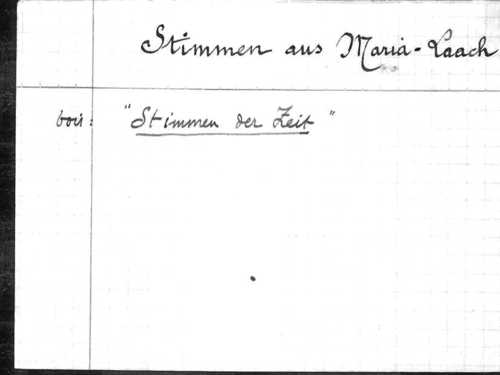 Stimmen aus Maria-Laach
voir: "Stimmen der Zeit"